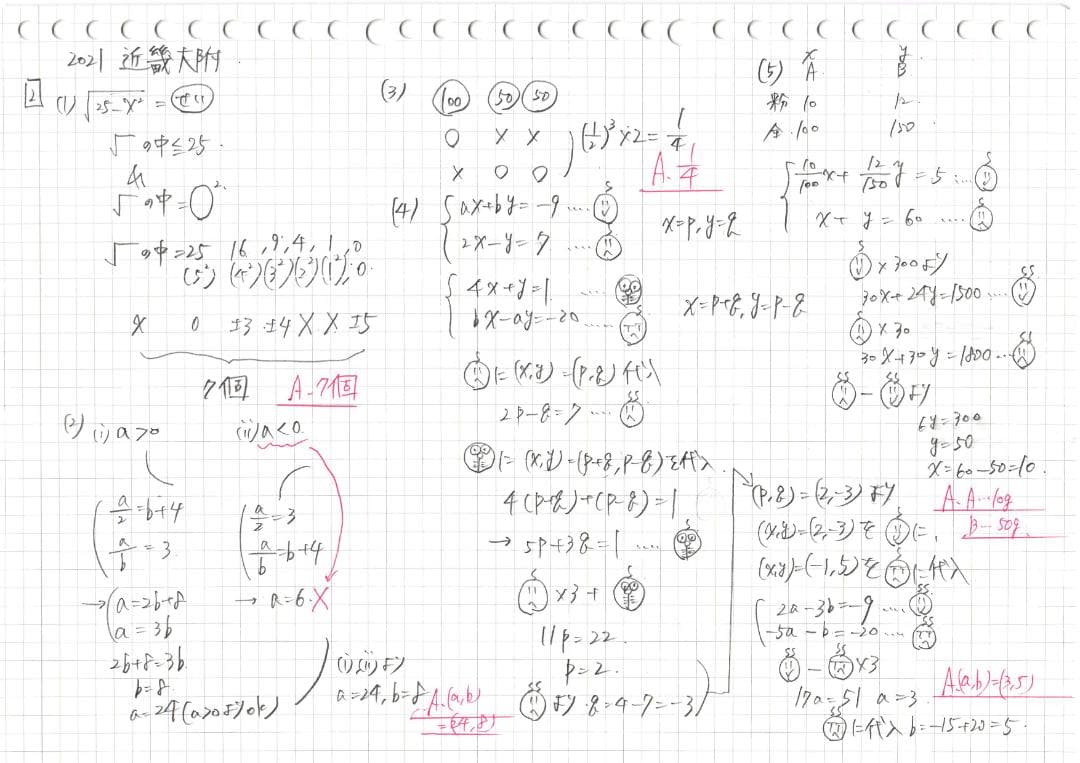 2021 近畿大附
2
(1) √25-x² = せい
√の中≦25
√の中=○²
√の中=25 16, 9, 4, 1, 0
(5²)(4²)(3²)(2²)(1²), 0.
x 0 ±3 ±4 X X ±5
7個 A. 7個
(2) (i) a>0 (ii) a<0
a/2=b+4
a/b=3.
→ a=2b+8
a=3b
2b+8=3b
b=8.
a=24 (a>0よりok)
a/2=3
a/b=b+4
→ a=6. X
(i)(ii)より
a=24, b=8
A. (a,b)
=(24,8)
(3) 100 50 50
○ × ×
× ○ ○
(1/2)³×2=1/4
A. 1/4
(4) ax+by=-9 ....
2x-y=7 ....
x=p, y=q
4x+y=1 ....
bx-ay=-20 ....
x=p+q, y=p-q
に (x,y)=(p,q) 代入
2p-q=7 ....
に (x,y)=(p+q, p-q)を代入
4(p+q)+(p-q)=1
→ 5p+3q=1 ....
×3+
11p=22.
p=2.
より q=4-7=-3
(p,q)=(2,-3) より
(x,y)=(2,-3) を に、
(x,y)=(-1,5) を に代入
2a-3b=-9 ....
-5a-b=-20 ....
- ×3
17a=51 a=3.
に代入 b=-15+20=5.
A. (a,b)=(3,5)
(5) x y
A B
粉 10 12
全. 100 150
10/100x+12/150y=5 ....
x+y=60 ....
×300より
30x+24y=1500 ....
×30
30x+30y=1800 ....
- より
6y=300
y=50
x=60-50=10.
A. A…10g
B…50g.